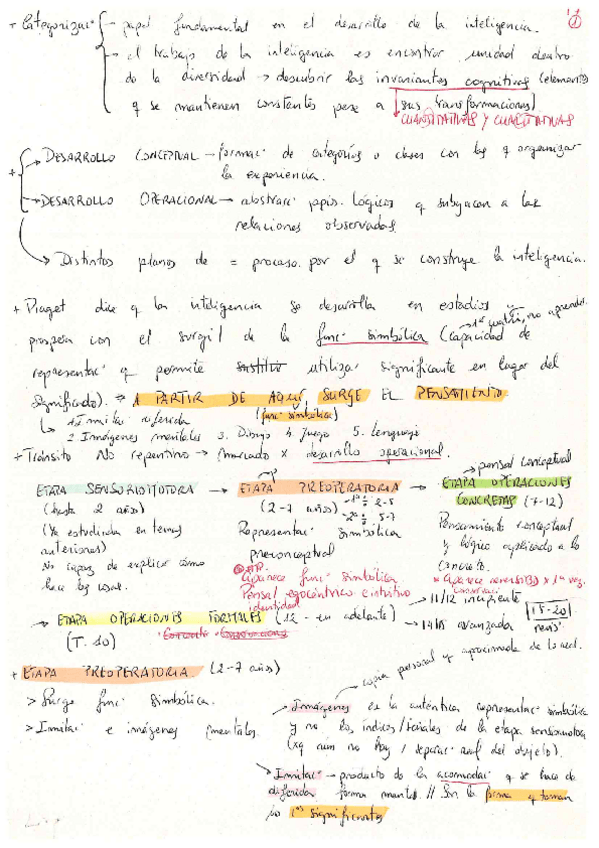 + Categorizar - papel fundamental en el desarrollo de la inteligencia.
- el trabajo de la inteligencia es encontrar unidad dentro
de la diversidad → descubrir las invariantes cognitivas (elementos
q se mantienen constantes pese a sus transformaciones)
CUANTITATIVAS Y CUALITATIVAS
+ → DESARROLLO CONCEPTUAL → formac. de categorías o clases con las q organizar
la experiencia.
→ DESARROLLO OPERACIONAL → abstracc. ppios. lógicos q subyacen a las
relaciones observadas
→ Distintos planos de = proceso por el q se construye la inteligencia.
+ Piaget dice q la inteligencia se desarrolla en estadios
prospera con el surgir de la func. simbólica (capacidad de
representac. q permite utilizar significante en lugar del
significado). → A PARTIR DE AQUÍ, SURGE EL PENSAMIENTO
(func. simbólica)
1 Imitac. diferida
2 Imágenes mentales 3. Dibujo 4. Juego 5. Lenguaje
+ Tránsito No repentino → marcado x desarrollo operacional.
ETAPA SENSORIOMOTORA → ETAPA PREOPERATORIA → ETAPA OPERACIONES
CONCRETAS (7-12)
pensal conceptual
(hasta 2 años)
(2-7 años) 1ª: 2-5
2ª: 5-7
(Ya estudiada en temas
anteriores)
No capaz de explicar cómo
hace las cosas.
Representac. simbólica
preconceptual
Aparece func. simbólica
Pensal egocéntrico e intuitivo
identidad
Pensamiento conceptual
y lógico aplicado a lo
concreto.
* Aparece x 1ª vez.
→ ETAPA OPERACIONES FORMALES (12 - en adelante)
(T. 10)
→ 11/12 incipiente
→ 14/15 avanzada
15-20
+ ETAPA PREOPERATORIA (2-7 años)
> Surge func. simbólica.
> Imitac. e imágenes mentales.
copia personal y aproximada de la real.
Imágenes es la auténtica representac. simbólica
y no los índices/señales de la etapa sensiomotora
(xq aun no hay separac. real del objeto).
Imitac. diferida - producto de la acomodac. q se hace de
forma mental // Son la forma q toman
los 1os significantes